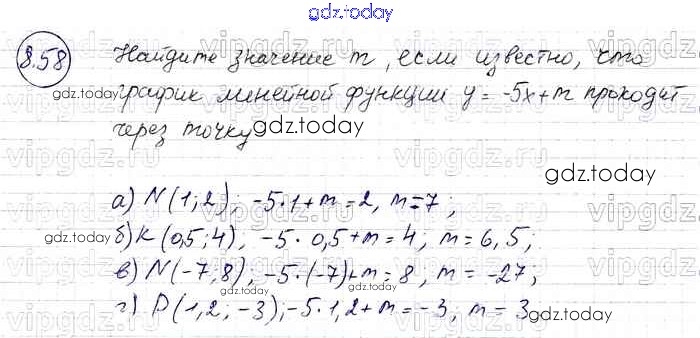 gdz.today
8.58 Найдите значение m, если известно, что
график линейной функции y = -5x+m проходит
gdz.today
через точку gdz.today
gdz.today
а) N(1;2), -5·1+m=2, m=7;
gdz.today
б) K(0,5;4), -5·0,5+m=4; m=6,5;
в) N(-7;8), -5·(-7)+m=8, m=-27;
gdz.today
г) P(1,2;-3), -5·1,2+m=-3, m=3
gdz.today